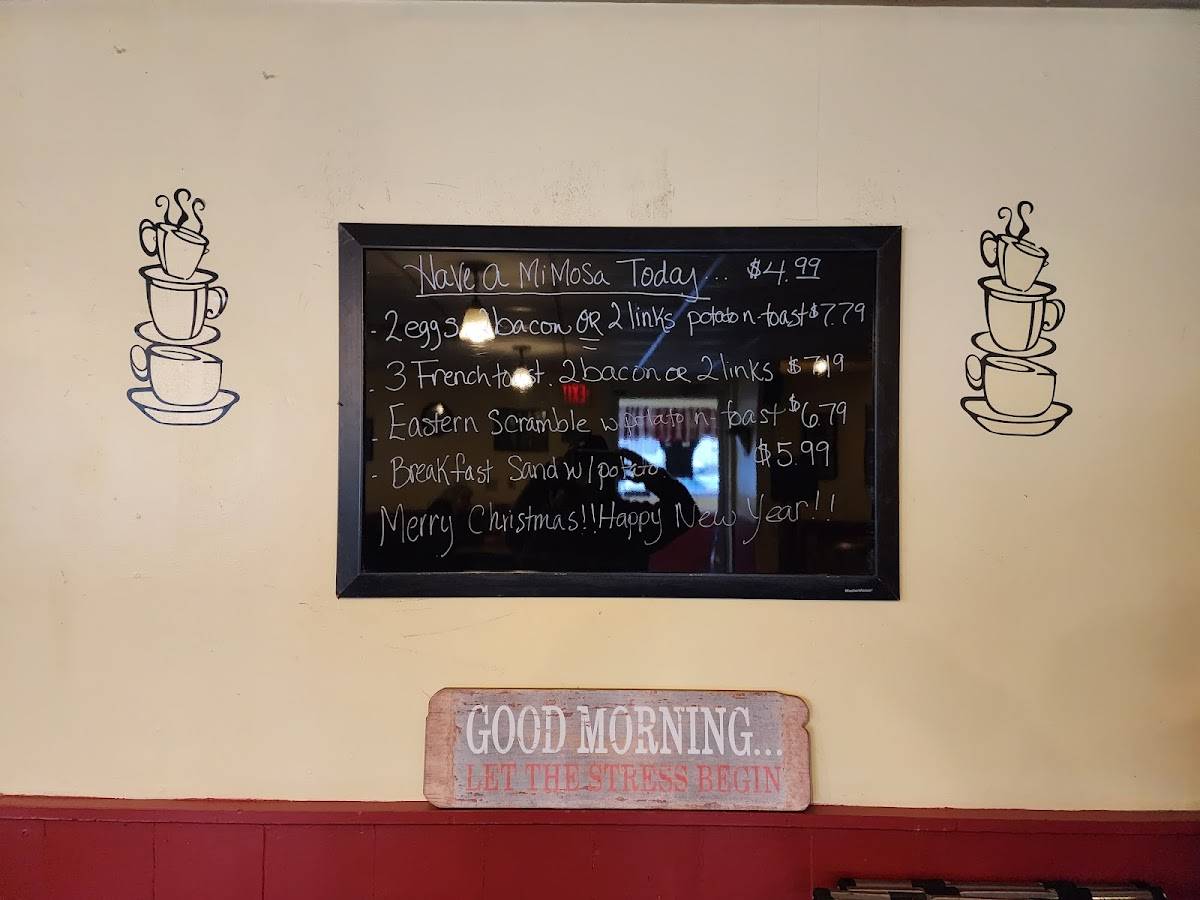 Have a MiMosa Today... $4.99
- 2 eggs 2 bacon OR 2 links potato n-toast $7.79
- 3 French toast. 2 bacon or 2 links $7.19
- Eastern Scramble w potato n-toast $6.79
- Breakfast Sand w/potato $5.99
Merry Christmas!! Happy New Year!!
GOOD MORNING...
LET THE STRESS BEGIN